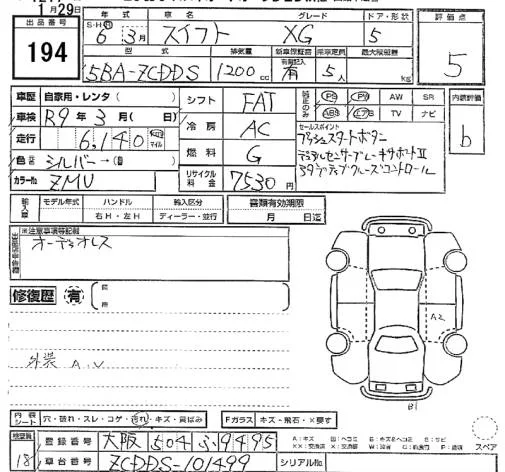 1月29日
出品番号
194
年式 車名 グレード ドア・形状
S・H・R 6年 3月 スイフト XG 5
型式 排気量 新車保証書 乗車定員 最大積載量
5BA-ZCDDS 1200cc 有 5人 kg
評価点
5
内装評価
b
車歴 自家用・レンタ( )
車検 R9年3月( 日)
走行 6,140 km マイル
色 シルバー→( )
カラーNo ZMU
シフト FAT
冷房 AC
燃料 G
リサイクル料金 7530円
純正のみ PS PW AW SR
ABS エアB TV ナビ
セールスポイント
プッシュスタートボタン
デュアルセンサーブレーキサポートⅡ
アダプティブクルーズコントロール
輸入車 モデル年式 ハンドル 輸入区分
右H・左H ディーラー・並行
書類有効期限
月 日迄
※注意事項等記載
オーディオレス
修復歴 有 箇所
外装 A.U
A2
B1
内装シート 穴・破れ・スレ・コゲ・汚れ・キズ・肩ばみ
Fガラス キズ・飛石・×要す
検査員 18
登録番号 大阪 504 ふ 9495
車台番号 ZCDDS-101499
シリアルNo.
スペア